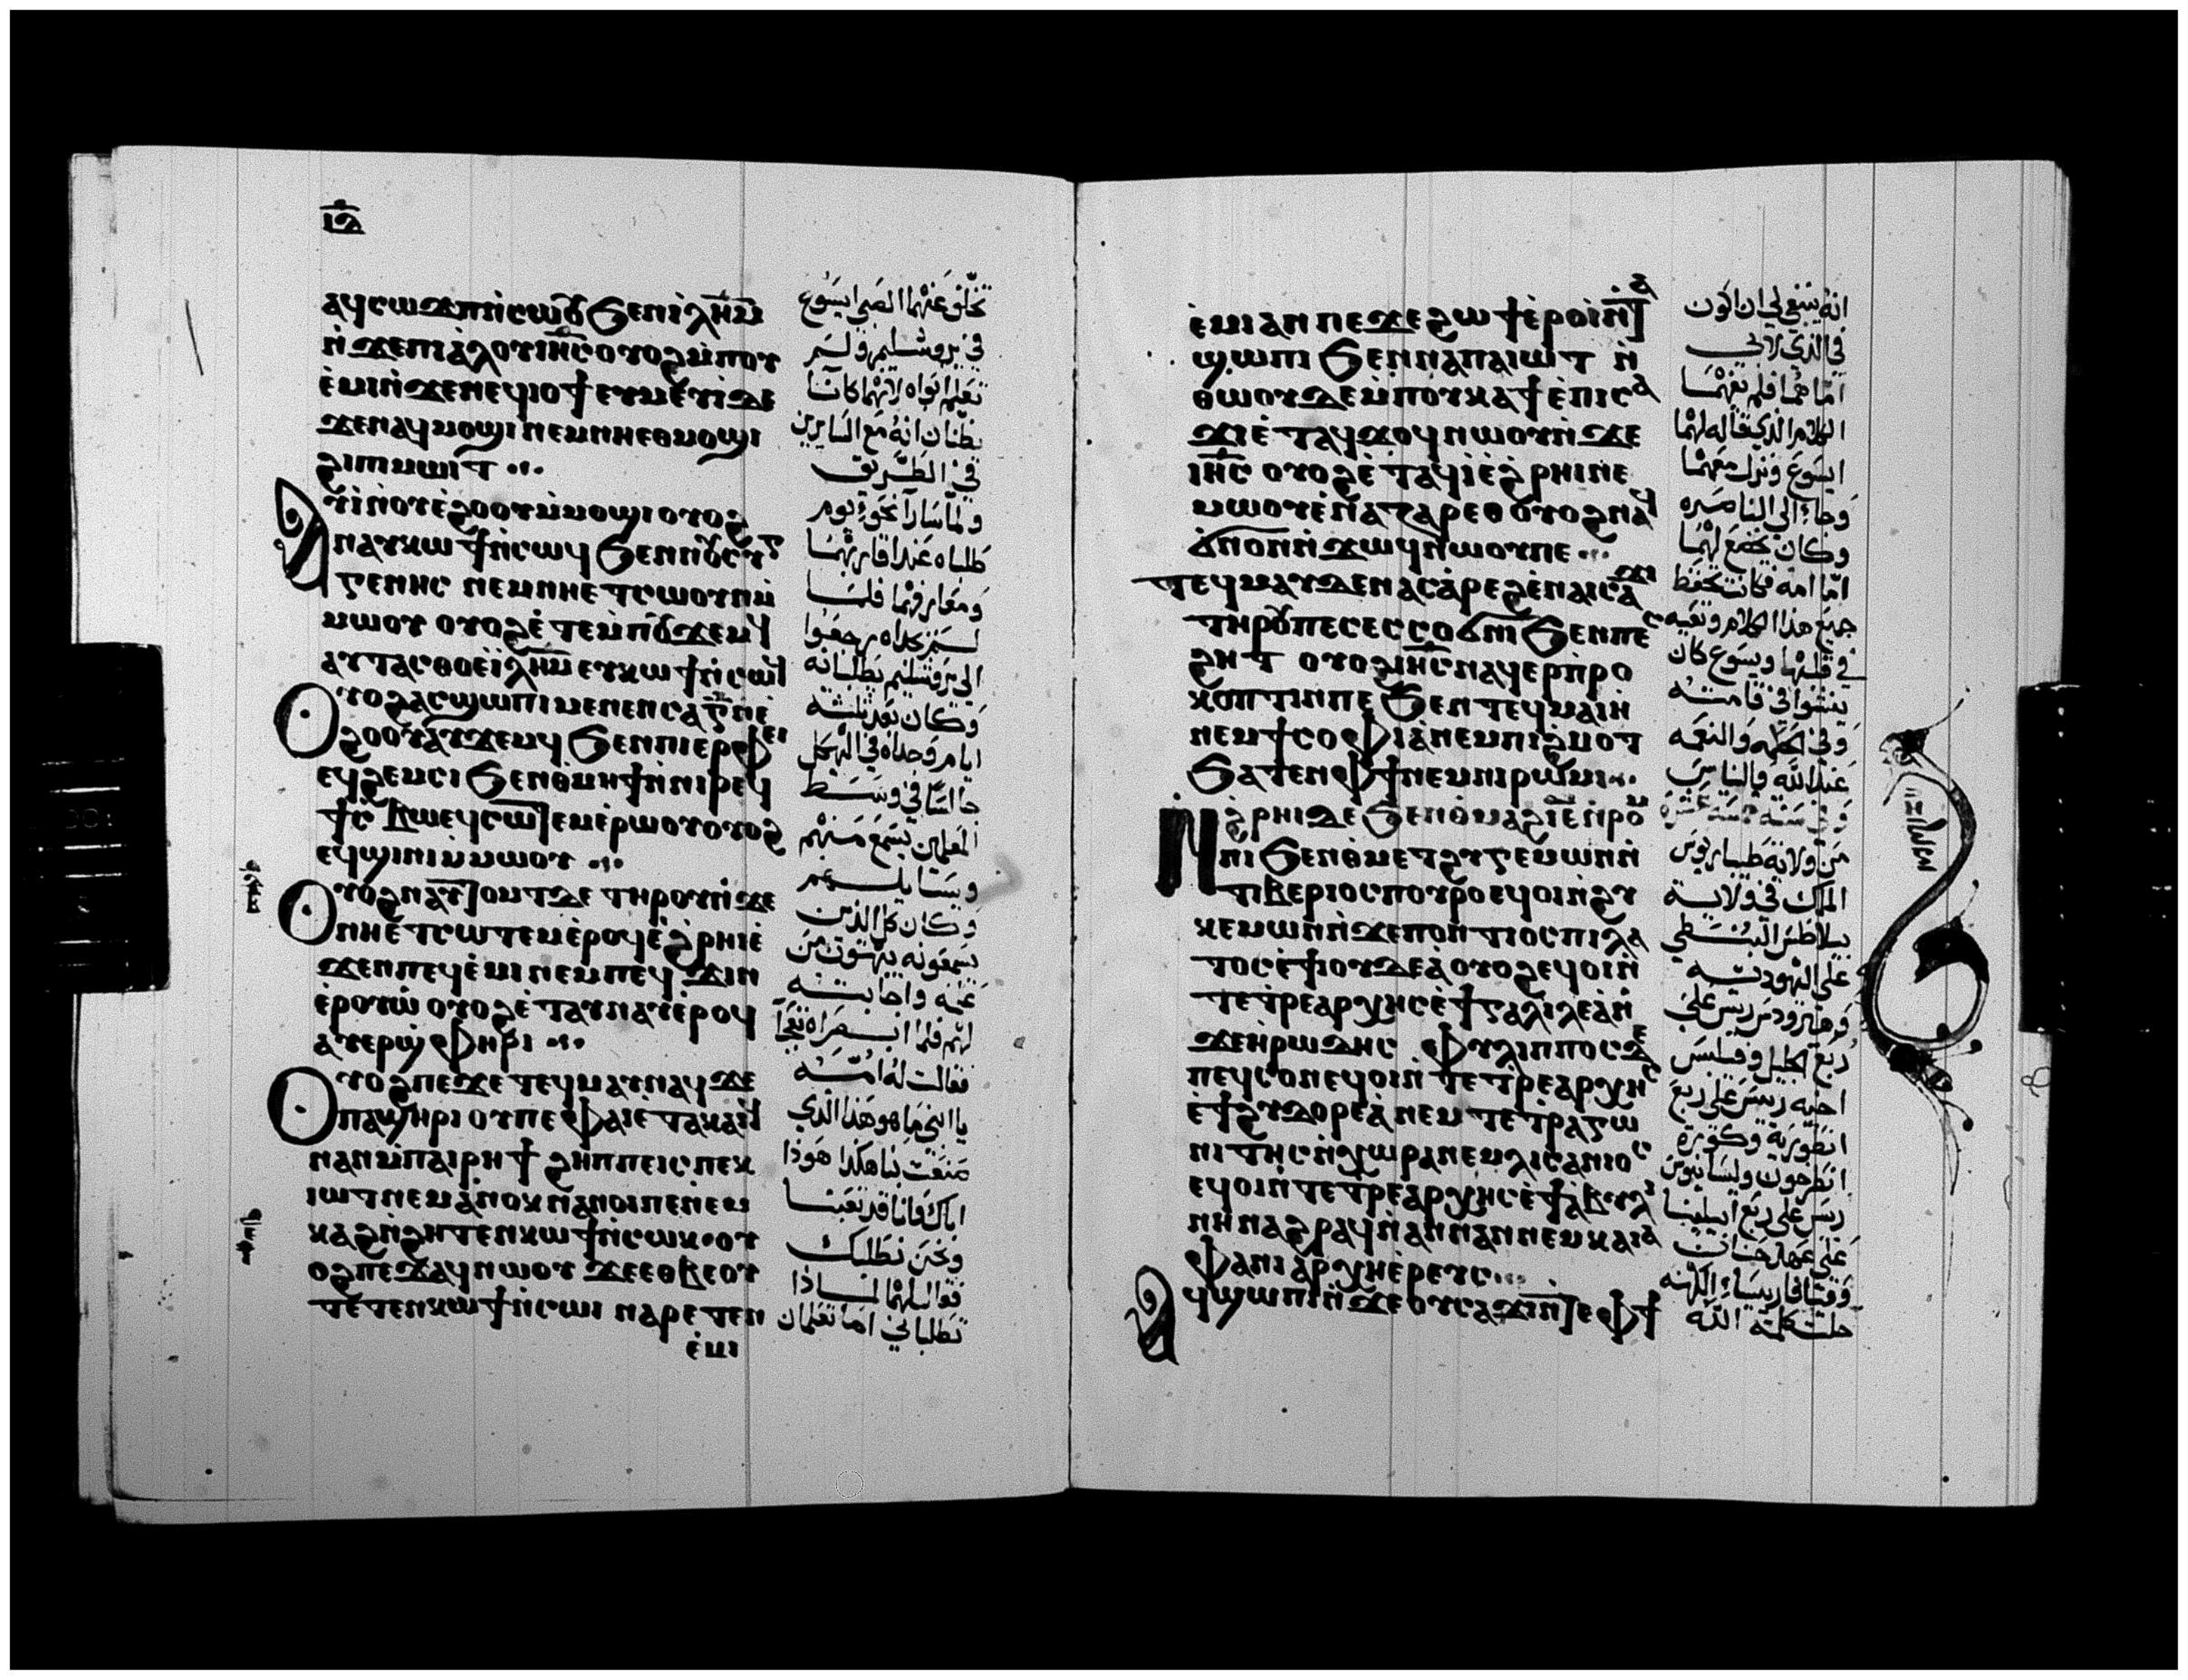 ⲁϥⲥⲱϫⲡ ⲛ̀ⲥⲱⲟⲩ ϧⲉⲛ ⲓ̀ⲗ̅ⲏ̅ⲙ̅
ⲛ̀ϫⲉ ⲡⲓⲁ̀ⲗⲟⲩ ⲓⲏ̅ⲥ̅ ⲟⲩⲟϩ ⲙ̀ⲡⲟⲩ
ⲉ̀ⲙⲓ ⲛ̀ϫⲉ ⲛⲉϥⲓⲟϯ ⲉⲩⲙⲉⲩⲓ̀ ϫⲉ
ϫⲉ ⲛⲁϥⲙⲟϣⲓ ⲛⲉⲙ ⲛⲏⲉⲑⲙⲟϣⲓ
ϩⲓ ⲡⲓⲙⲱⲓⲧ
ⲁⲩⲓ̀ ⲛⲟⲩⲉ̀ϩⲟⲟⲩ ⲙ̀ⲙⲟϣⲓ ⲟⲩⲟϩ
ⲛⲁⲩⲕⲱϯ ⲛ̀ⲥⲱϥ ϧⲉⲛ ⲛⲟⲩⲥⲩ
ⲅⲅⲉⲛⲏⲥ ⲛⲉⲙ ⲛⲏⲉⲧⲥⲱⲟⲩⲛ ⲙ̀
ⲙⲱⲟⲩ ⲟⲩⲟϩ ⲉ̀ⲧⲉⲙⲡⲟⲩϫⲉⲙϥ
ⲁⲩⲧⲁⲥⲑⲟ ⲉⲓ̀ⲗ̅ⲏ̅ⲙ̅ ⲉⲩⲕⲱϯ ⲛ̀ⲥⲱϥ
ⲟⲩⲟϩ ⲁⲥϣⲱⲡⲓ ⲙⲉⲛⲉⲛⲥⲁ ⲅ̅ ⲛⲉ̀
ϩⲟⲟⲩ ⲁⲩϫⲉⲙϥ ϧⲉⲛ ⲡⲓⲉⲣⲫⲉⲓ
ⲉϥϩⲉⲙⲥⲓ ϧⲉⲛ ⲑⲙⲏϯ ⲛ̀ⲛⲓⲣⲉϥ
ϯⲥⲃⲱ ⲉϥⲥⲱⲧⲉⲙ ⲉ̀ⲣⲱⲟⲩ ⲟⲩⲟϩ
ⲉϥϣⲓⲛⲓ ⲙ̀ⲙⲱⲟⲩ
ⲟⲩⲟϩ ⲛⲁⲩⲧⲟⲙⲧ ⲇⲉ ⲧⲏⲣⲟⲩ ⲛ̀ϫⲉ
ⲛⲏⲉ̀ⲧⲥⲱⲧⲉⲙ ⲉ̀ⲣⲟϥ ⲉ̀ϩⲣⲏⲓ ⲉ̀
ϫⲉⲛ ⲡⲉϥⲉ̀ⲙⲓ ⲛⲉⲙ ⲡⲉϥϫⲓⲛ
ⲉ̀ⲣⲟⲩⲱ̀ ⲟⲩⲟϩ ⲉ̀ⲧⲁⲩⲛⲁⲩ ⲉ̀ⲣⲟϥ
ⲁⲩⲉⲣϣⲫⲏⲣⲓ
ⲟⲩⲟϩ ⲡⲉϫⲉ ⲧⲉϥⲙⲁⲩ ⲛⲁϥ ϫⲉ
ⲡⲁϣⲏⲣⲓ ⲟⲩⲡⲉ ⲫⲁⲓ ⲉ̀ⲧⲁⲕⲁⲓϥ
ⲛⲁⲛ ⲙ̀ⲡⲁⲓⲣⲏϯ ϩⲏⲡⲡⲉ ⲓⲥ ⲡⲉⲕ
ⲓⲱⲧ ⲛⲉⲙ ⲁ̀ⲛⲟⲕ ⲛⲁⲛⲟⲓ ⲡⲉ ⲛ̀ⲉⲙ
ⲕⲁϩ ⲛ̀ϩⲏⲧ ⲉⲛⲕⲱϯ ⲛ̀ⲥⲱⲕ ⲟⲩ
ⲟϩ ⲡⲉϫⲁϥ ⲛⲱⲟⲩ ϫⲉ ⲉⲑⲃⲉ ⲟⲩ
ⲧⲉⲧⲉⲛⲕⲱϯ ⲛ̀ⲥⲱⲓ ⲛⲁⲣⲉⲧⲉⲛ
ⲉ̀ⲙⲓ
تخلّف عنهما الصبي ايسوع
في يروشليم ولم
تعلم ابواه لانهما كانا
يظنان انه مع السايرين
في الطريق
ولما سارا نحو يوم
طلباه عند اقاربهما
ومعارفهما فلما
لم يجداه رجعوا
الي يروشليم يطلبانه
وكان بعد ثلثه
ايام وجداه في الهيكل
جالسا في وسط
المعلمين يسمع منهم
ويسايلهم
وكان كل الذين
يسمعونه يبهتون من
علمه واجابته
لهم فلما ابصراه تعجبا
فقالت له امه
يا ابني ما هو هذا الذي
صنعت بنا هكذا هوذا
اباك وانا قد تعبنا
ونحن نطلبك
فقال لهما لماذا
تطلباني اما تعلمان
ⲉ̀ⲙⲓ ⲁⲛ ⲡⲉ ϫⲉ ϩⲱϯ ⲉ̀ⲣⲟⲓ ⲛ̀ⲧⲁ
ϣⲱⲡⲓ ϧⲉⲛ ⲛⲁ ⲡⲁⲓⲱⲧ ⲛ̀
ⲑⲱⲟⲩ ⲇⲉ ⲙ̀ⲡⲟⲩⲕⲁϯ ⲉ̀ⲡⲓⲥⲁ
ϫⲓ ⲉ̀ⲧⲁϥϫⲟϥ ⲛⲱⲟⲩ ⲛ̀ϫⲉ
ⲓⲏ̅ⲥ̅ ⲟⲩⲟϩ ⲉ̀ⲧⲁϥⲓ̀ ⲉ̀ϩⲣⲏⲓ ⲛⲉ
ⲙⲱⲟⲩ ⲉ̀ⲛⲁⲍⲁⲣⲉⲑ ⲟⲩⲟϩ ⲛⲁϥ
ϭⲛⲟⲛ ⲛ̀ϫⲱϥ ⲛⲱⲟⲩ ⲡⲉ
ⲧⲉϥⲙⲁⲩ ⲇⲉ ⲛⲁⲥⲁ̀ⲣⲉϩ ⲉ̀ⲛⲁⲓⲥⲁϫⲓ
ⲧⲏⲣⲟⲩ ⲡⲉ ⲥⲉⲥⲟϭⲛⲓ ϧⲉⲛ ⲡⲉⲥ
ϩⲏⲧ ⲟⲩⲟϩ ⲓⲏ̅ⲥ̅ ⲛⲁϥⲉⲣⲡⲣⲟ
ⲕⲟⲡⲧⲓⲛ ⲡⲉ ϧⲉⲛ ⲧⲉϥⲙⲁⲓⲏ
ⲛⲉⲙ ϯⲥⲟⲫⲓⲁ̀ ⲛⲉⲙ ⲡⲓϩⲙⲟⲧ
ϧⲁⲧⲉⲛ ⲫϯ ⲛⲉⲙ ⲛⲓⲣⲱⲙⲓ
ⲛ̀ϩⲣⲏⲓ ⲇⲉ ϧⲉⲛ ⲑⲙⲁϩ ⲓ̅ⲉ̅ ⲛ̀ⲣⲟⲙ
ⲡⲓ ϧⲉⲛ ⲑⲙⲉⲧϩⲩⲅⲉⲙⲱⲛ ⲛ̀
ⲧⲓⲃⲉⲣⲓⲟⲥ ⲡⲟⲩⲣⲟ ⲉϥⲟⲓ ⲛ̀ϩⲩ
ⲕⲉⲙⲱⲛ ⲛ̀ϫⲉ ⲡⲟⲛⲧⲓⲟⲥ ⲡⲓⲗⲁ
ⲧⲟⲥ ⲉ̀ϯⲓⲟⲩⲇⲉⲁ̀ ⲟⲩⲟϩ ⲉϥⲟⲓ ⲛ̀
ⲧⲉⲧⲣⲉⲁⲣⲭⲏⲥ ⲉ̀ϯⲅⲁⲗⲓⲗⲉⲁ̀ ⲛ̀
ϫⲉ ⲏ̀ⲣⲱⲇⲏⲥ ⲫⲩⲗⲓⲡⲡⲟⲥ ⲇⲉ
ⲡⲉϥⲥⲟⲛ ⲉϥⲟⲓ ⲛ̀ⲧⲉⲧⲣⲉⲁⲣⲭⲏⲥ
ⲉ̀ϯϩⲩⲇⲟⲣⲉⲁ̀ ⲛⲉⲙ ⲧⲉⲧⲣⲁⲅⲱ
ⲛⲓⲧⲏⲥ ⲛ̀ⲭⲱⲣⲁ ⲛⲉⲙ ⲗⲓⲥⲁⲛⲓⲟⲥ
ⲉϥⲟⲓ ⲛ̀ⲧⲉⲧⲣⲉⲁⲣⲭⲏⲥ ⲉ̀ϯⲁ̀ⲃⲩⲗⲓ
ⲛⲏ ⲛⲁϩⲣⲁϥ ⲛ̀ⲁⲛⲛⲁⲛ ⲛⲉⲙ ⲕⲁⲓⲁ
ⲫⲁ ⲛⲓⲁⲣⲭⲏⲉ̀ⲣⲉⲩⲥ
ⲁϥϣⲱⲡⲓ ⲛ̀ϫⲉ ⲟⲩⲥⲁϫⲓ ⲛ̀ⲧⲉ ⲫϯ
انه ينبغي لي ان اكون
في الذي لابي
اما هما فلم يفهما
الكلام الذي قاله لهما
ايسوع ونزل معهما
وجاء الي الناصره
وكان يخضع لهما
اما امه فكانت تحفظ
جميع هذا الكلام وتعيه
في قلبها ويسوع كان
ينشوا في قامته
وفي الحكمه والنعمه
عند الله والناس
وفي سنه خمسه عشره
من ولاية طيباريوس
الملك في ولاية
بيلاطس البنطي
على اليهوديه
وهيرودس ريس على
ربع الجليل وفيلبس
اخيه رييس على ربع
على عهد حنان
وقيافا ريساء الكهنه
حلت كلمة الله